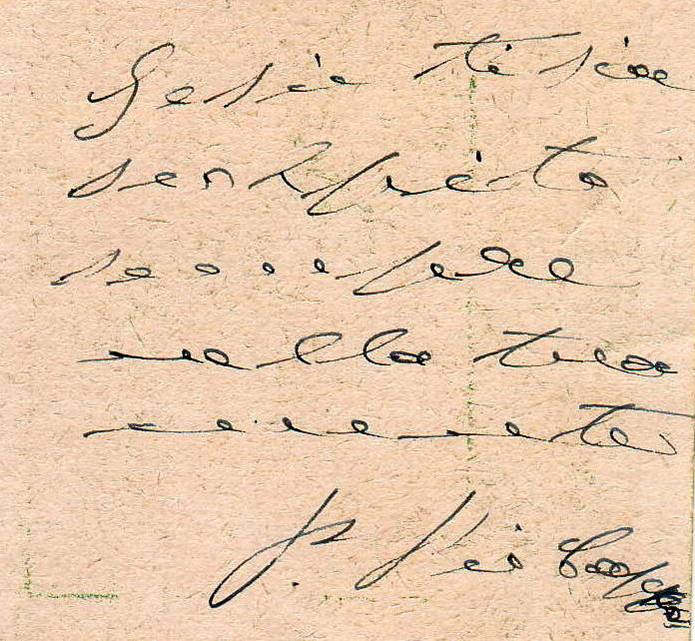 Gesù ti sia
scolpito
sempre
nella tua
mente
P. Pio Capp